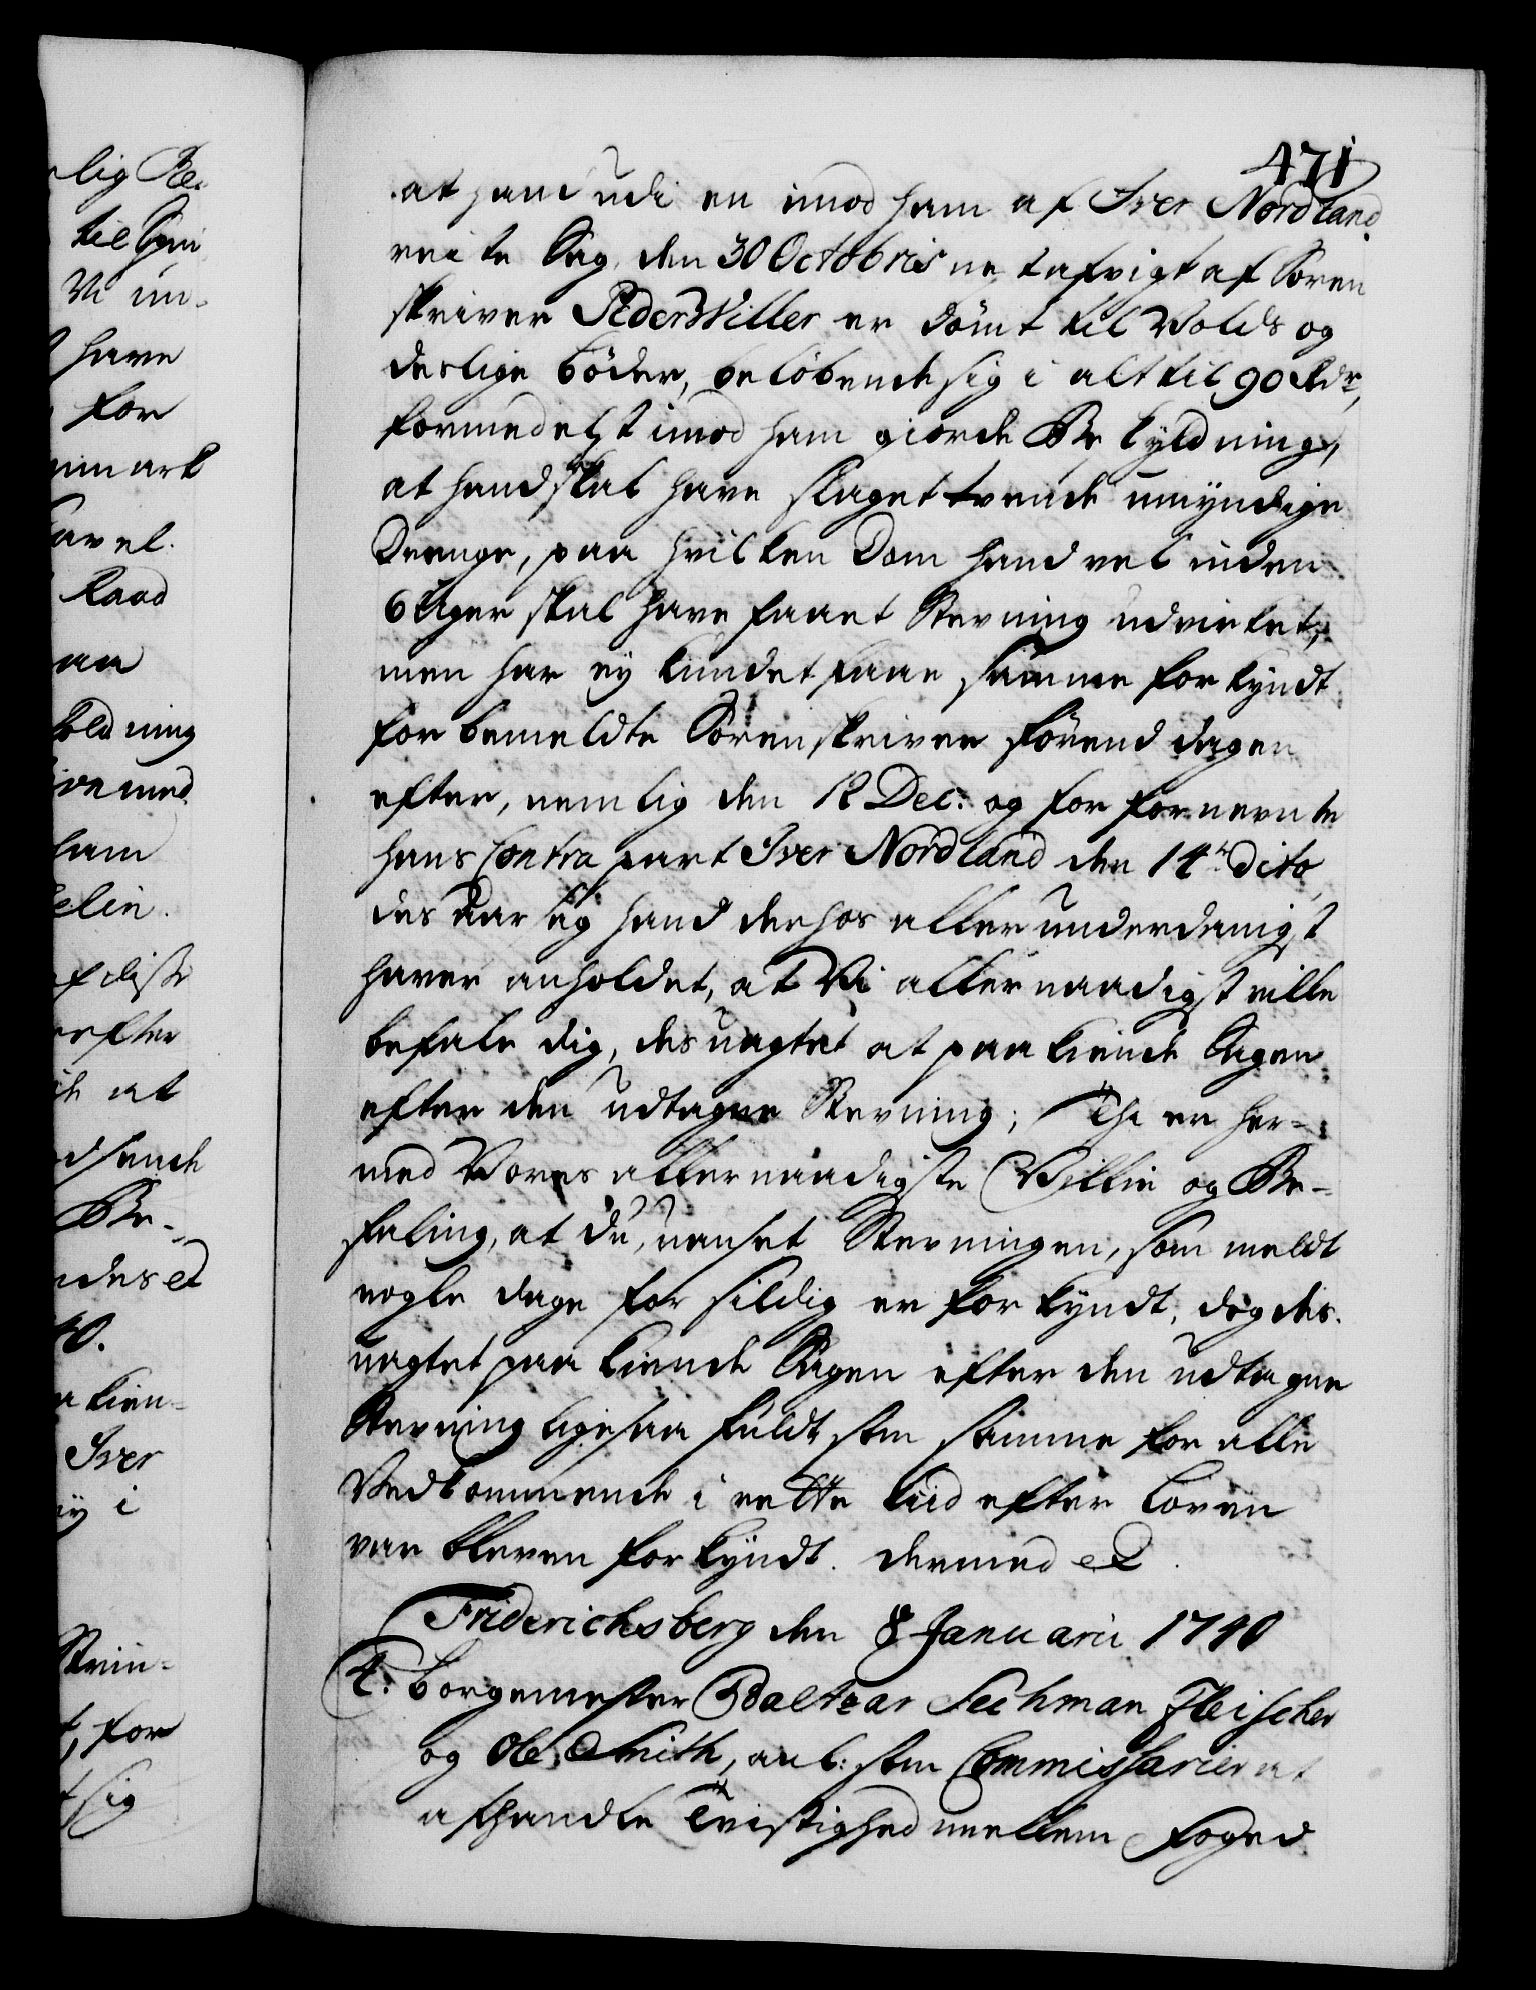 471
at hand udi en imod ham af Iver Nordland
reiste Sag, den 30 Octobris næstafvigt af Soren
skriver Peder Weller er dömt til Volds og
deslige böder, belöbende sig i alt til 90 Rdr,
formedelst imod ham giorde Beskyldning,
at hand skal have slaget tvende umyndige
Drenge, paa hvilken Dom hand vel inden
6 Uger skal have faaet Stevning udvirket,
men har ey kundet faae samme forkyndt
for bemeldte Sorenskriver förend dagen
efter, nemlig den 12 Dec: og for fornevnte
hans Contrapart Iver Nordland den 14de dito,
des Aarsag hand derhos allerunderdanigst
haver anholdet, at Vi allernaadigst ville
befale dig, des uagtet at paakiende Sagen
efter den udtagne Stevning; Thi er her-
med Vores allernaadigste Villie og Be-
faling, at du, uanset Stevningen, som meldt
nogle dage for sildig er forkyndt, dog des-
uagtet paakiende Sagen efter den udtagne
Stevning ligesaa fuldt som samme for alle
Vedkommende i rette tiid efter Loven
var bleven forkyndt. dermed et
Friderichsberg den 8 Januarii 1740
4. borgemester Baltzar Sechman Fleischer
og Ole Smith, anl: som Commissarier at
afhandle Tvistighed mellem Foged